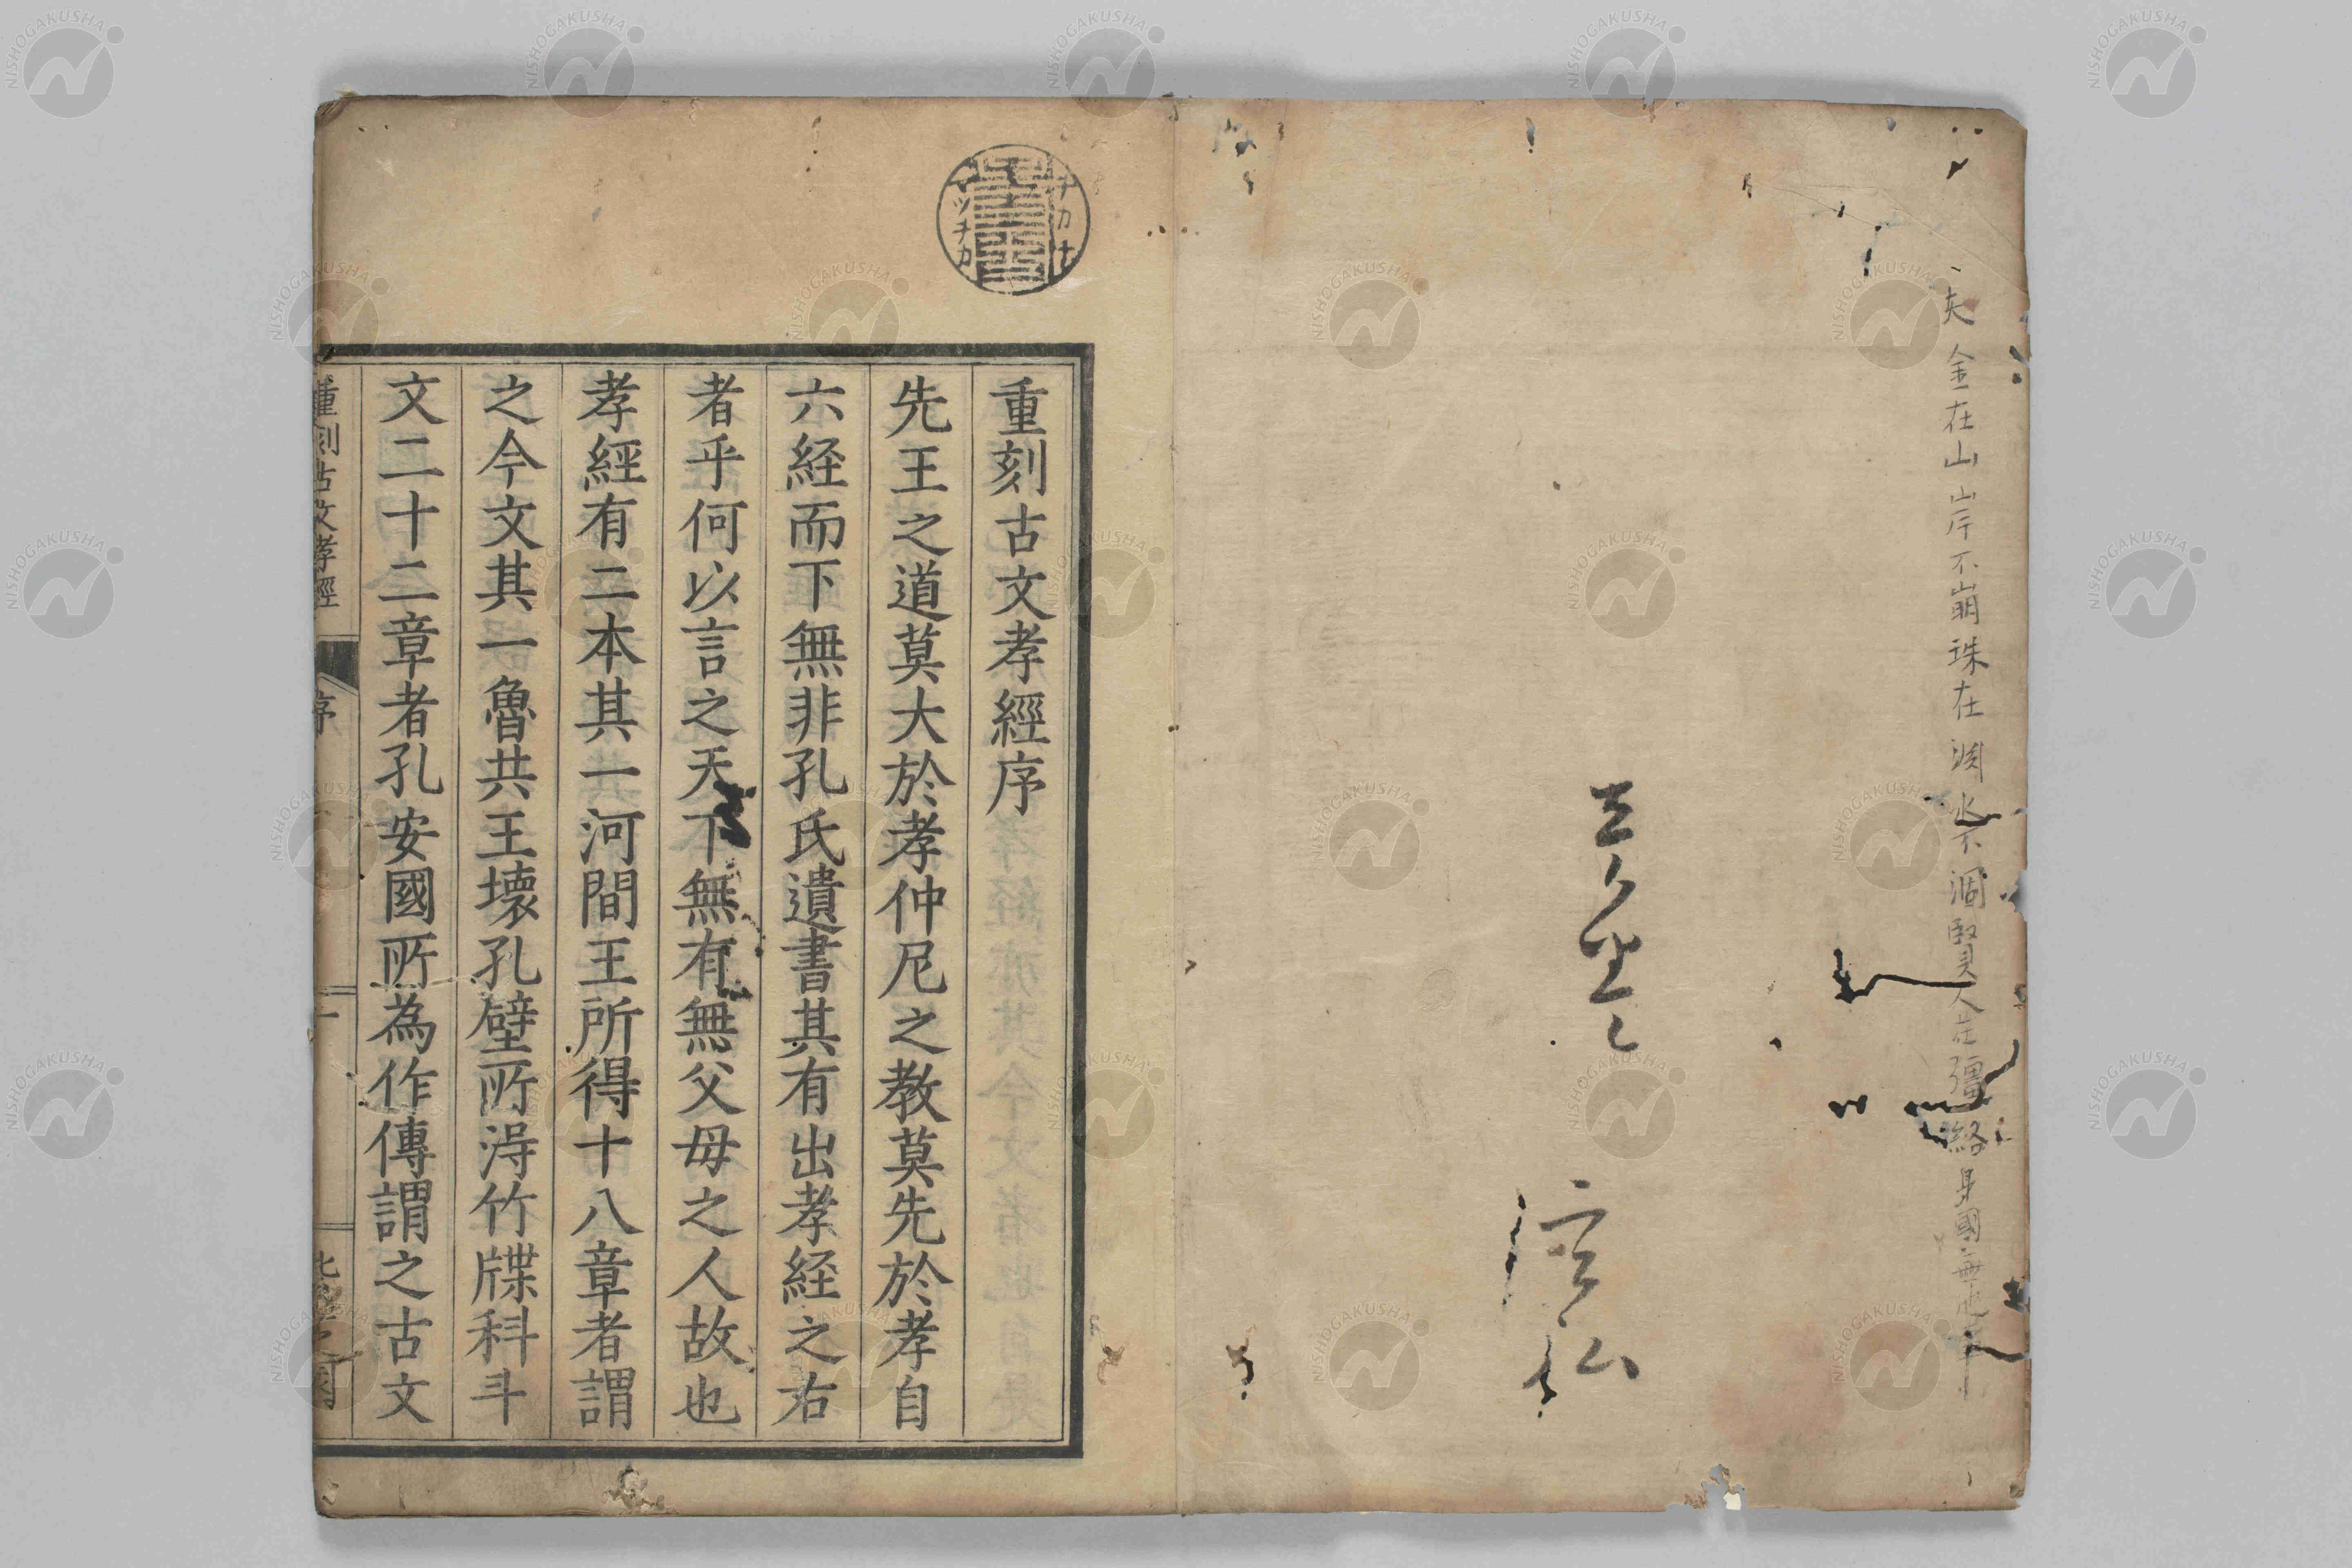 夫金在山岸不崩珠在渕水不涸賢人在彊絡身國無
重刻古文孝經序
先王之道莫大於孝仲尼之教莫先於孝自
六経而下無非孔氏遺書其有出孝経之右
者乎何以言之天下無有無父母之人故也
孝經有二本其一河間王所得十八章者謂
之今文其一魯共王壊孔壁所淂竹牒科斗
文二十二章者孔安國所為作傳謂之古文
重刻古文孝經 序 一
NISHOGAKUSHA